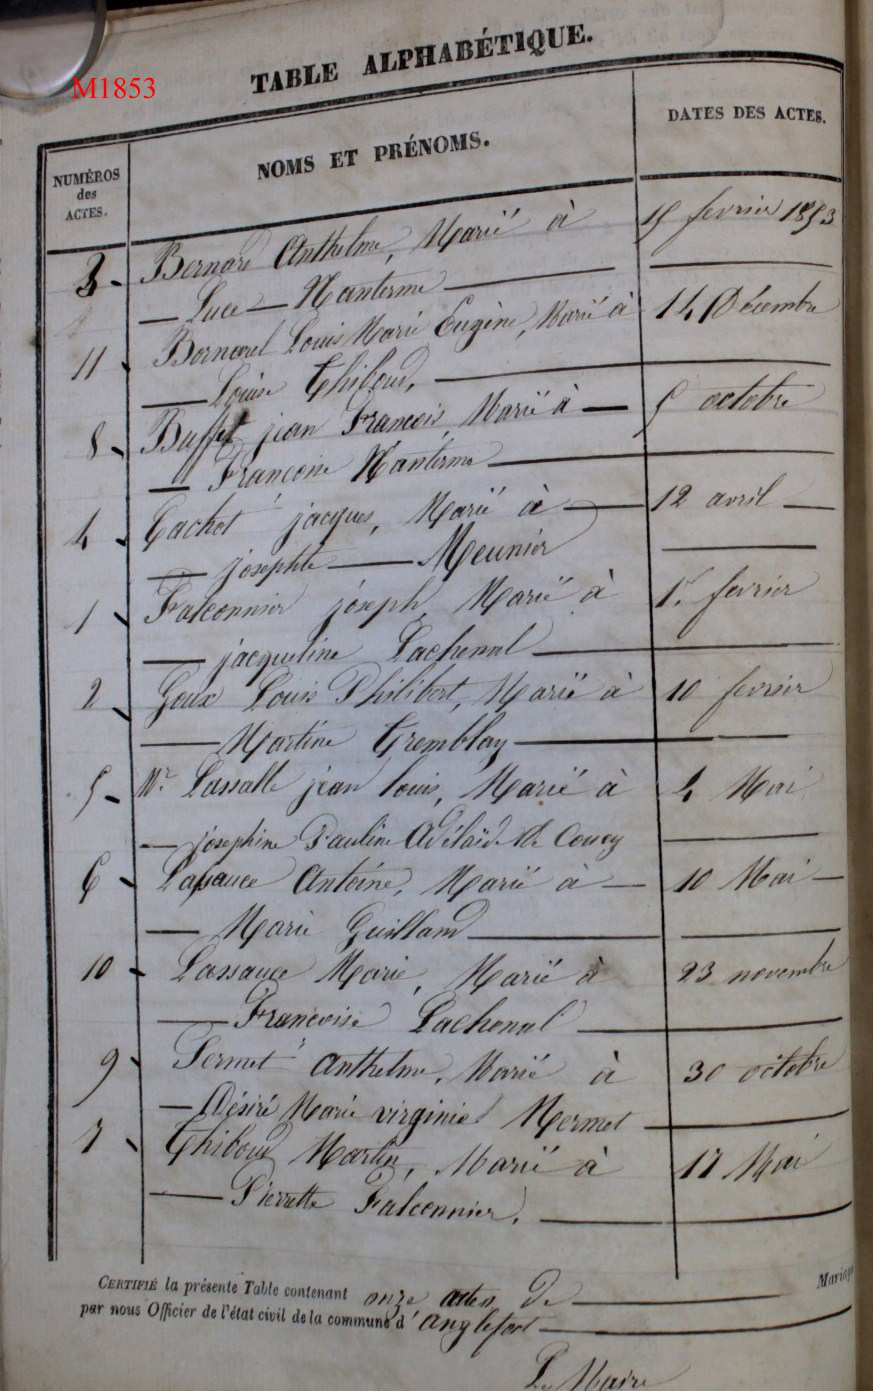 M1853
TABLE ALPHABÉTIQUE.
NUMÉROS des ACTES.
NOMS ET PRÉNOMS.
DATES DES ACTES.
3 - Bernard Anthelme, Marié à 15 fevrier 1853
— Luce — Nanterme —
11 - Bornarel Louis Marie Eugène, Marié à 14 Décembre
— Louise Thiboud, —
8 - Buffet jean François Marié à — 5 octobre
— Françoise Nanterme —
4 - Gachet jacques, Marié à — 12 avril —
— josephte — Meunier —
1 - Falconnier joseph, Marié à 1er fevrier
— jacqueline Lachenal —
2 - Goux Louis Philibert, Marié à 10 fevrier
— Martine Tremblay —
5 - Mr Lassalle jean louis, Marié à 4 Mai
— josephine Pauline Adélaïde de Coucy —
6 - Lassauce Antoine, Marié à — 10 Mai —
— Marie Guilland —
10 - Lassauce Marie, Marié à 23 novembre
— Francoise Lachenal —
9 - Sermet Anthelme, Marié à 30 octobre
— Désiré Marie virginie Mermet —
7 - Thiboud Martin, Marié à 17 Mai
— Pierrette Falconnier, —
CERTIFIÉ la présente Table contenant onze actes de — Mariage
par nous Officier de l'état civil de la commune d'anglefort —
Le Maire